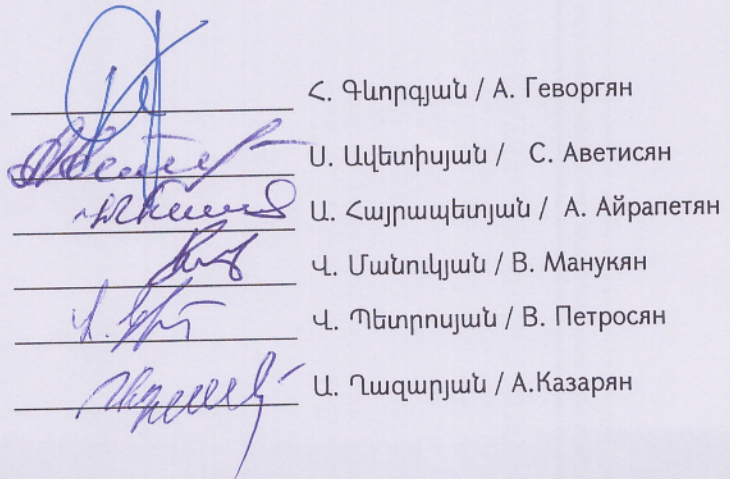 Հ. Գևորգյան / А. Геворгян
Ս. Ավետիսյան / С. Аветисян
Ա. Հայրապետյան / А. Айрапетян
Վ. Մանուկյան / В. Манукян
Վ. Պետրոսյան / В. Петросян
Ա. Ղազարյան / А.Казарян